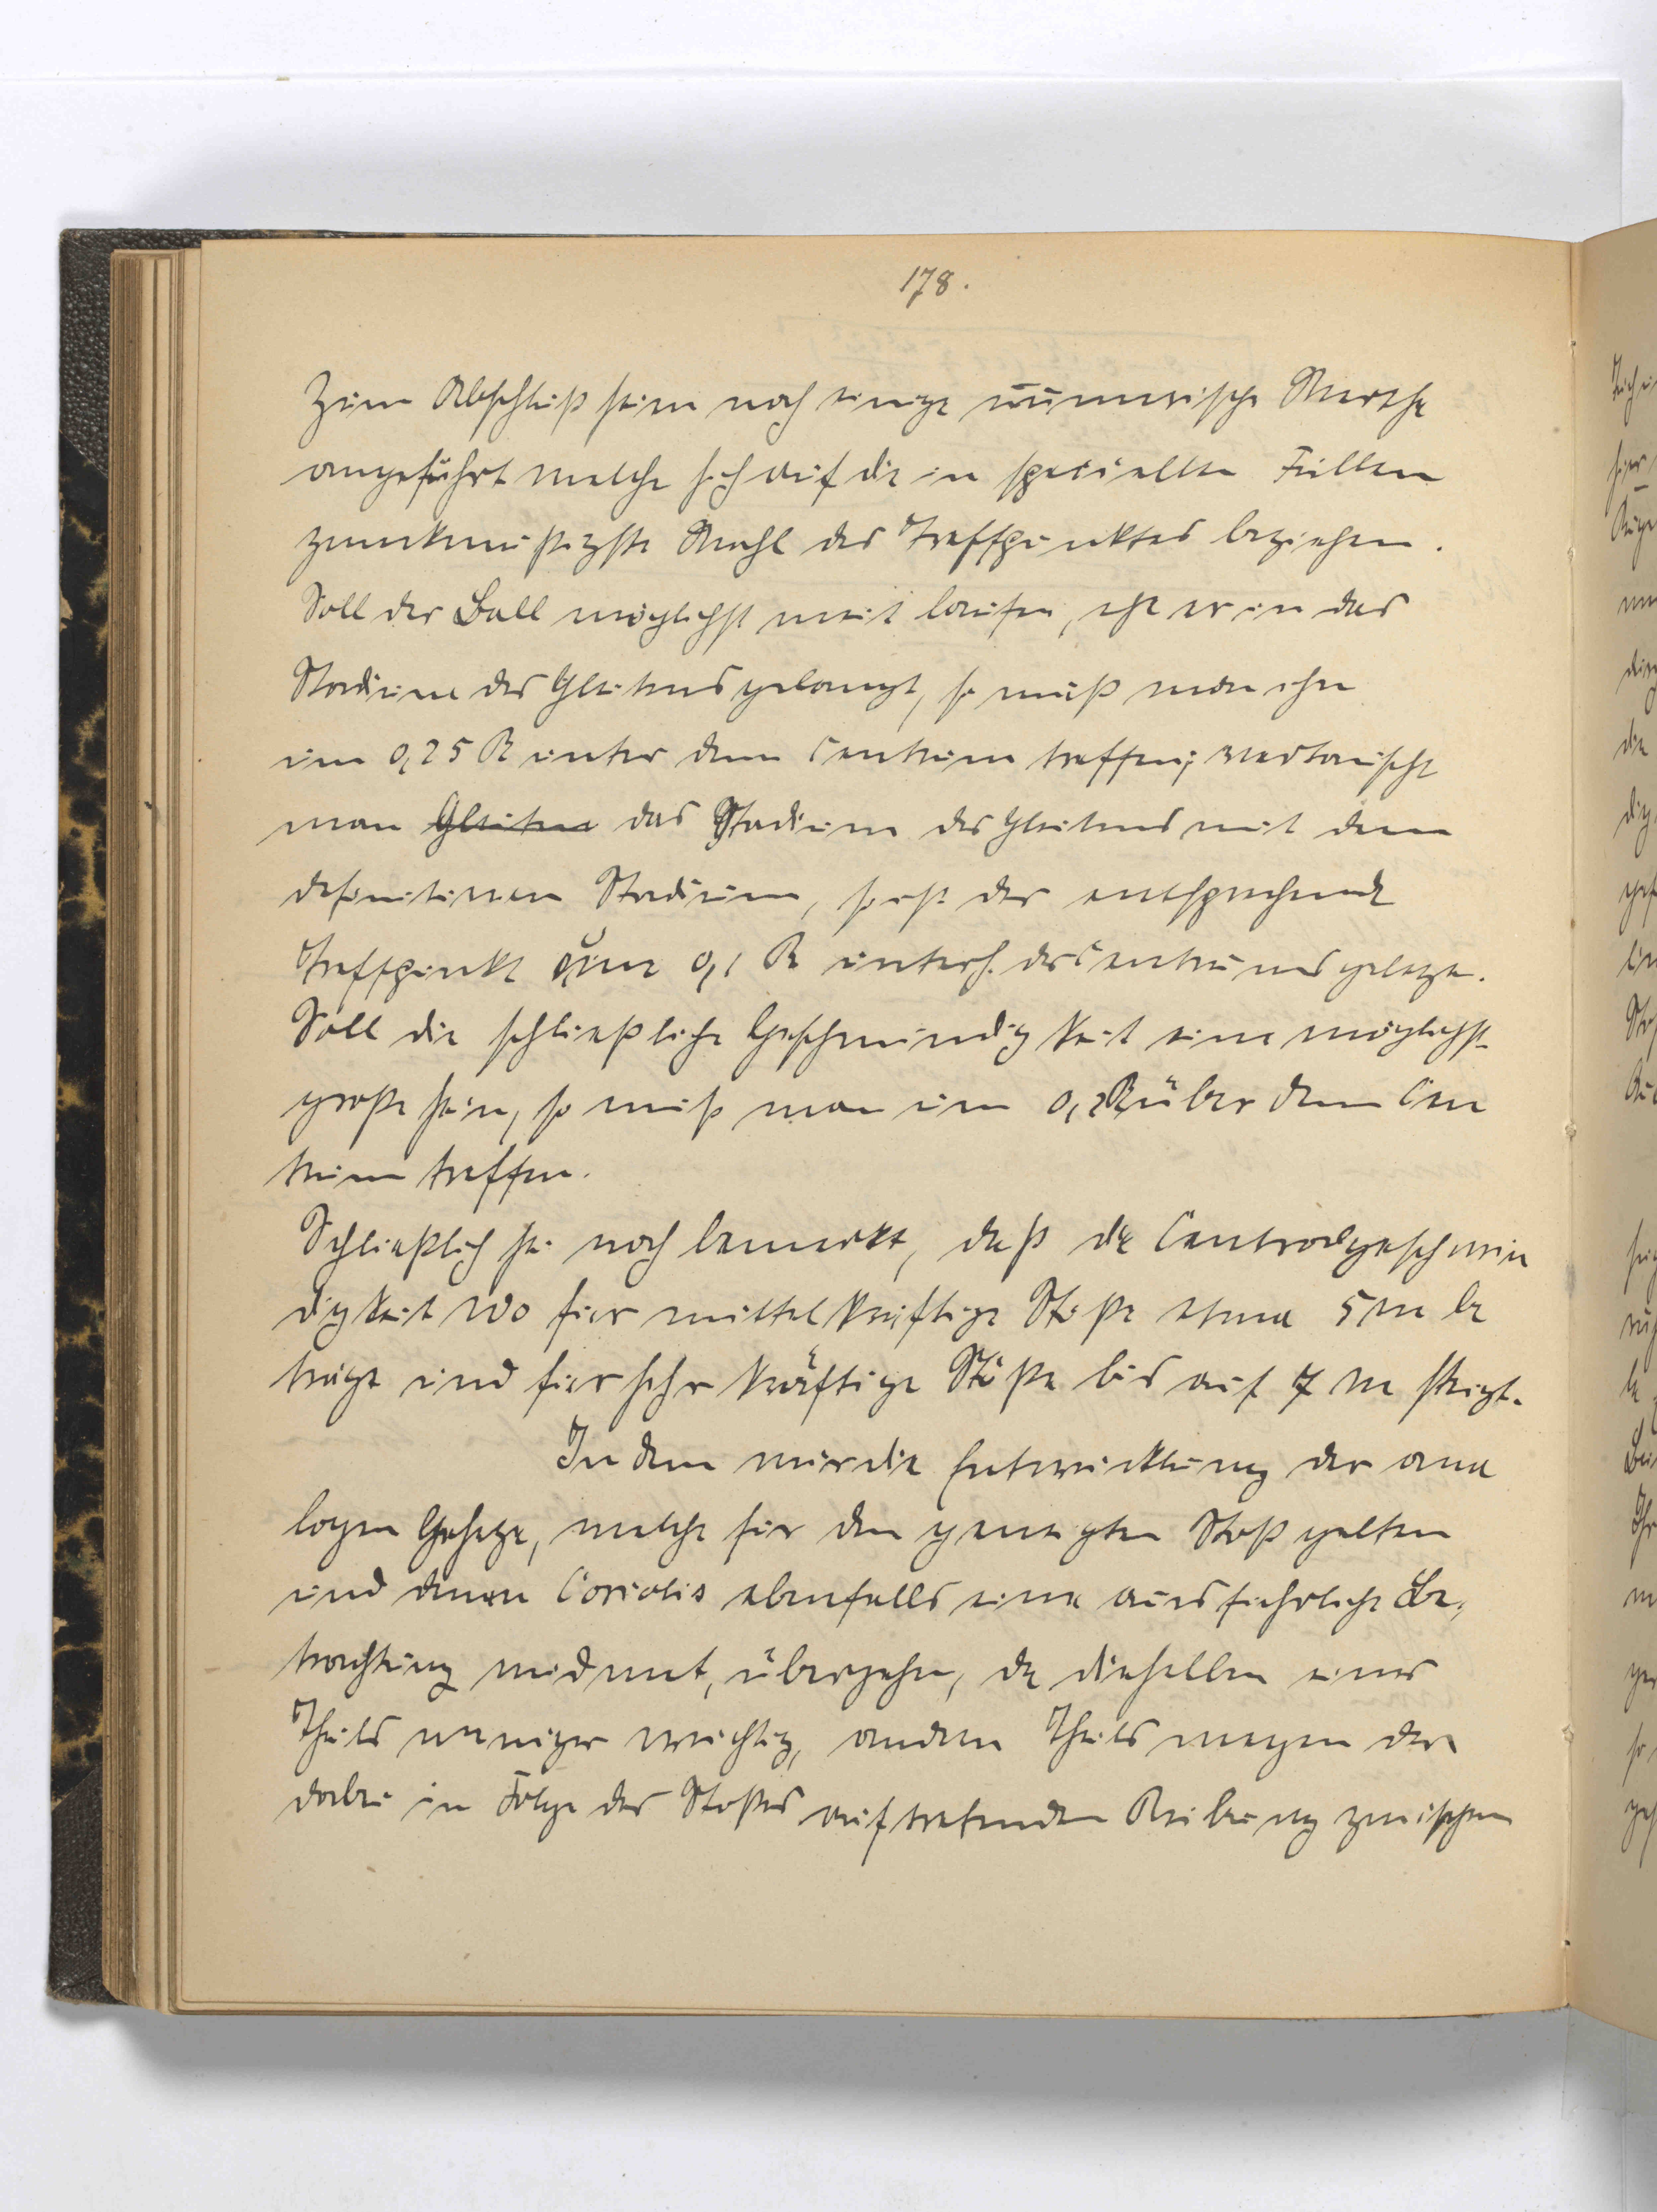 178.
Zum Abschluß seien noch einige nummerische Werthe
angeführt welche sich auf die in speciellen Fällen
zweckmäßigste Wahl des Treffpunktes beziehen.
Soll der Ball möglichst weit laufen, ehe er in das
Stadium des Gleitens gelangt, so muß man ihn
um 0,25 R unter dem Centrum treffen; vertauscht
man Gleiten das Stadium des Gleitens mit dem
definitiven Stadium, so ist der entsprechende
Treffpunkt um 0,1 R unterh. des Centrums gelegen.
Soll die schließliche Geschwindigkeit eine möglichst
große sein, so muß man um 0,2 R über dem Cen
trum treffen.
Schließlich sei noch bemerkt, daß die Centralgeschwin
digkeit wo für mittelkräftige Stöße etwa 5 m be
trägt und für sehr kräftige Stöße bis auf 7 m steigt.
In dem wir die Entwicklung der ana
logen Gesetze, welche für den geneigten Stoß gelten
und denen Coriolis ebenfalls eine ausführliche Be,
trachtung widmet, übergehen, da dieselben eines
Theils weniger wichtig, andern Theils wegen der
dabei in Folge des Stoßes auftretenden Reibung zwischen